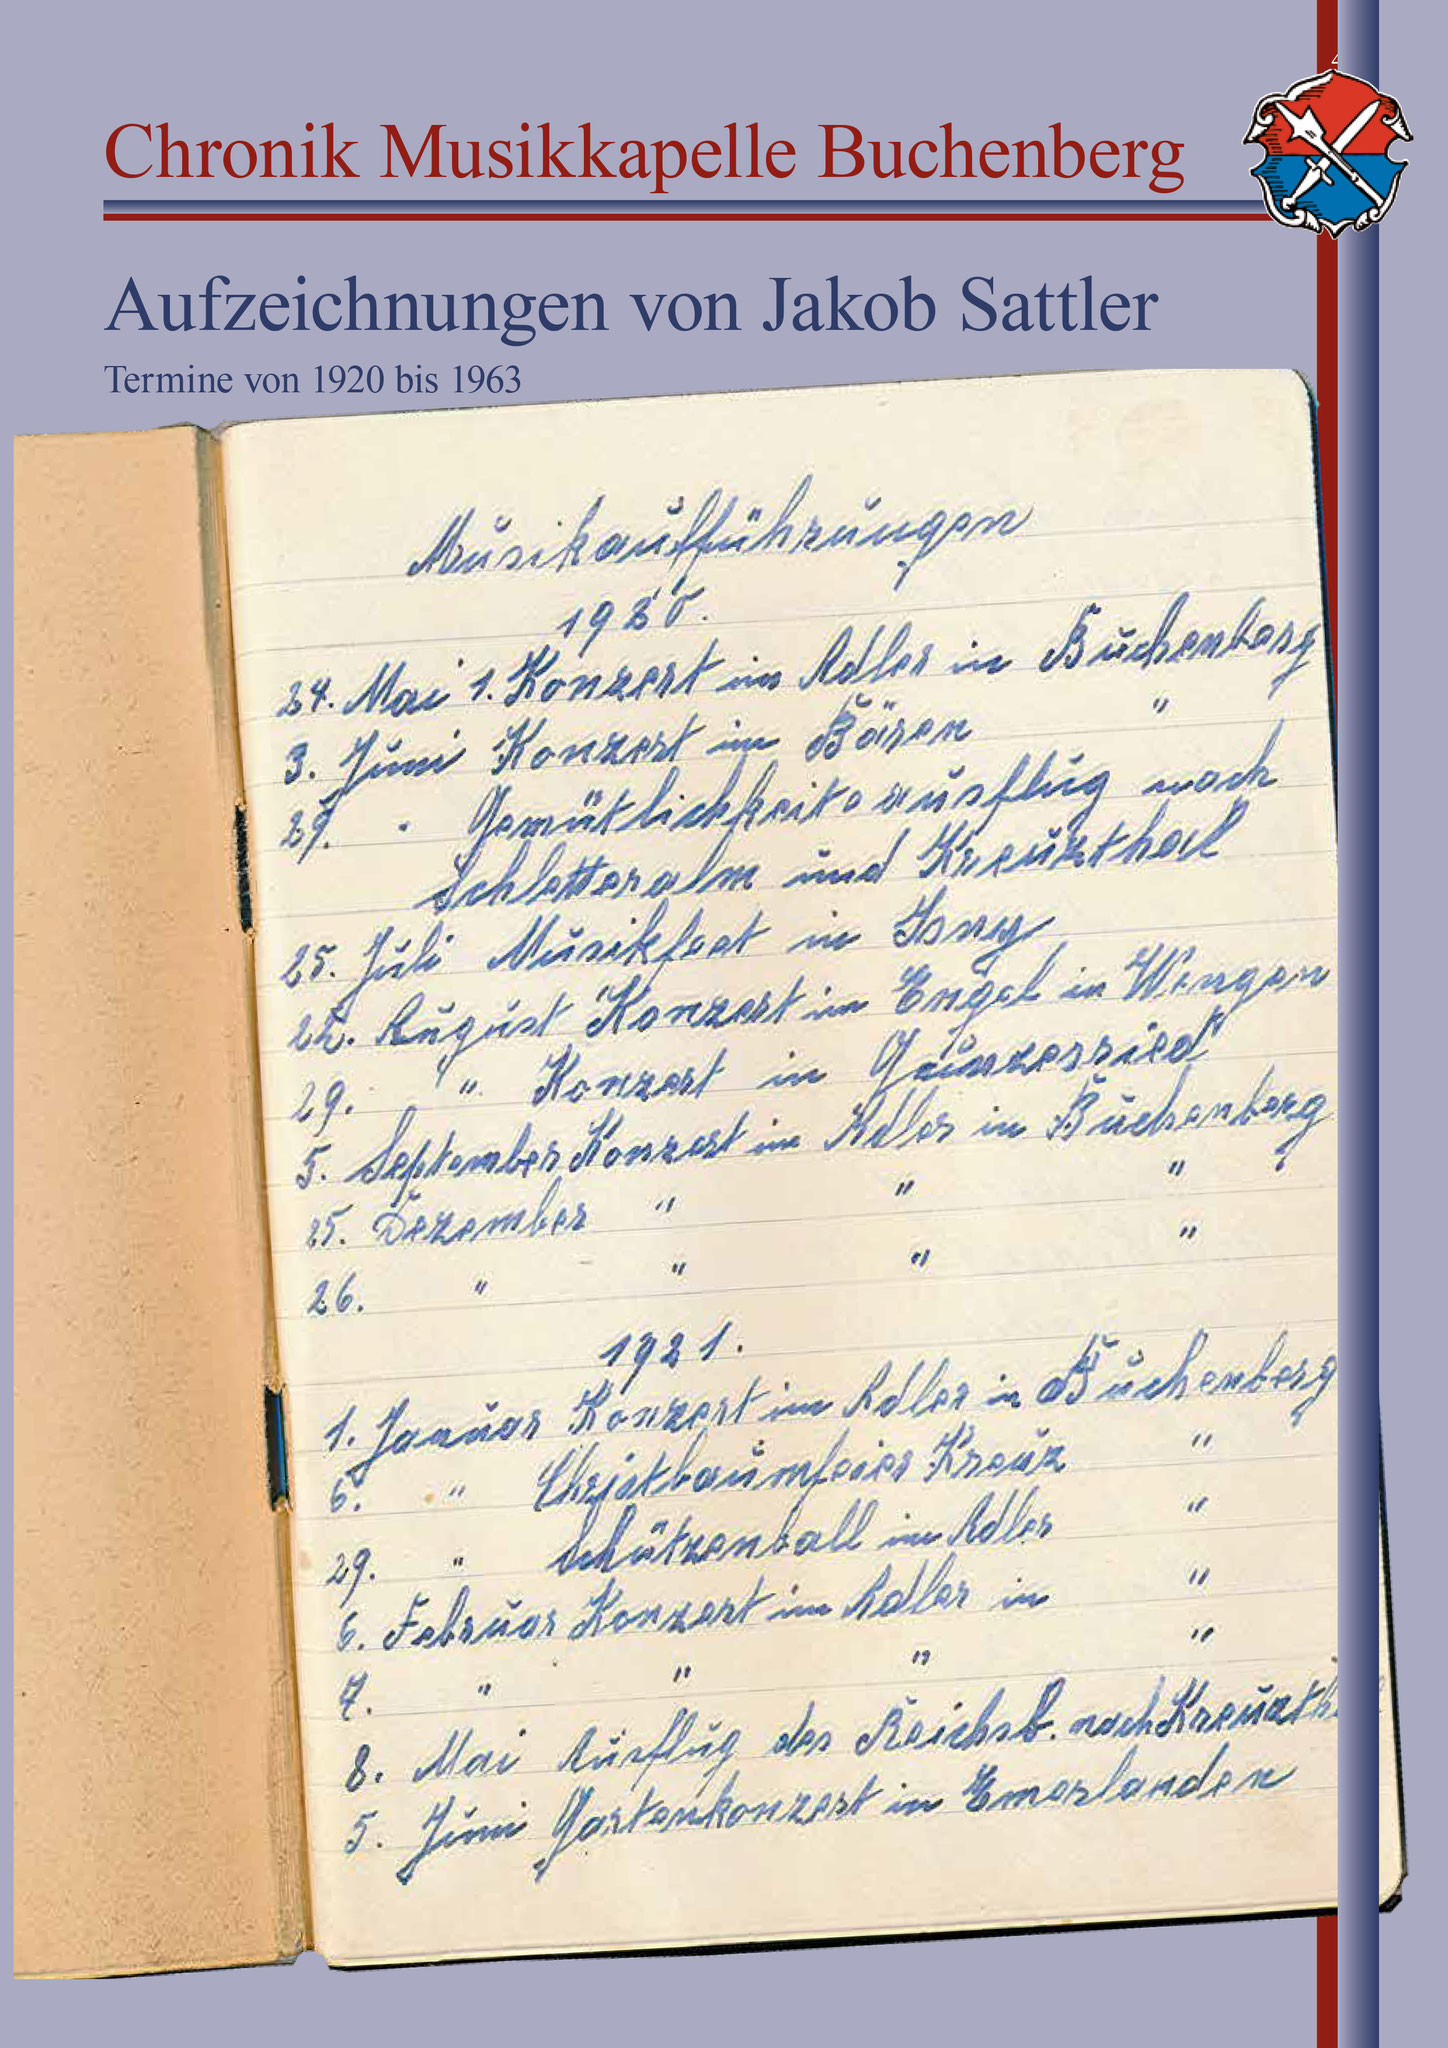 Chronik Musikkapelle Buchenberg
Aufzeichnungen von Jakob Sattler
Termine von 1920 bis 1963
Musikaufführungen
1920.
24. Mai 1. Konzert im Adler in Buchenberg
3. Juni Konzert im Bären "
29. " Gemütlichkeitsausflug nach
Schletteralm und Kreuzthal
25. Juli Musikfest in Isny
22. August Konzert im Engel in Wengen
29. " Konzert in Gunzesried
5. September Konzert im Adler in Buchenberg
25. Dezember " " "
26. " " " "
1921.
1. Januar Konzert im Adler in Buchenberg
6. " Christbaumfeier Kreuz "
29. " Schützenball im Adler "
6. Februar Konzert im Adler in "
7. " " " "
8. Mai Ausflug des Reichsb. nach Kreuzth
5. Juni Gartenkonzert in Emerlanden